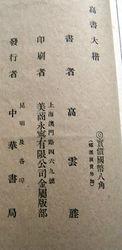 高書大楷
◎實價國幣八角
書者 高雲塍
上海澳門路四六九號
印刷者 美商永寧有限公司金屬版部
發行者 中華書局
昆明及各埠